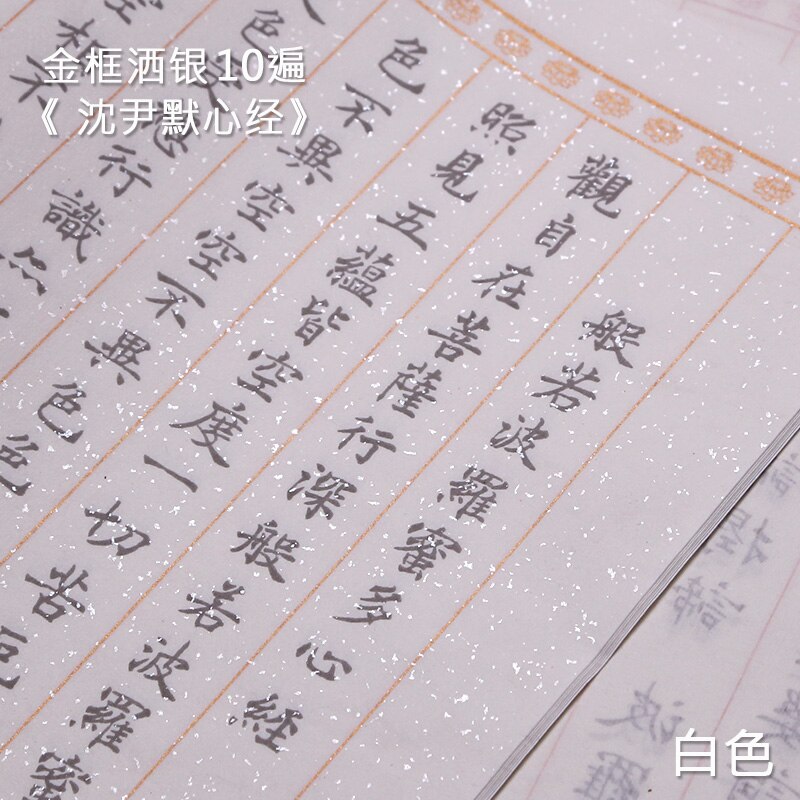 金框洒银10遍
《沈尹默心经》
般若波羅蜜多心經
觀自在菩薩行深般若波羅蜜
照見五蘊皆空度一切苦厄
色不異空空不異色色
行識
白色